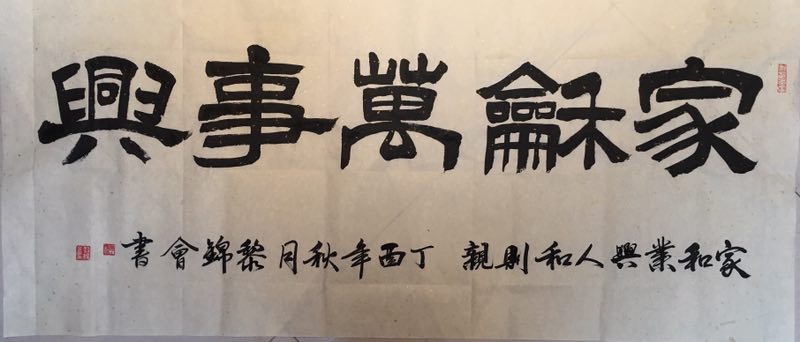 家龢萬事興
家和業興人和則親 丁酉年秋月黎錦會書